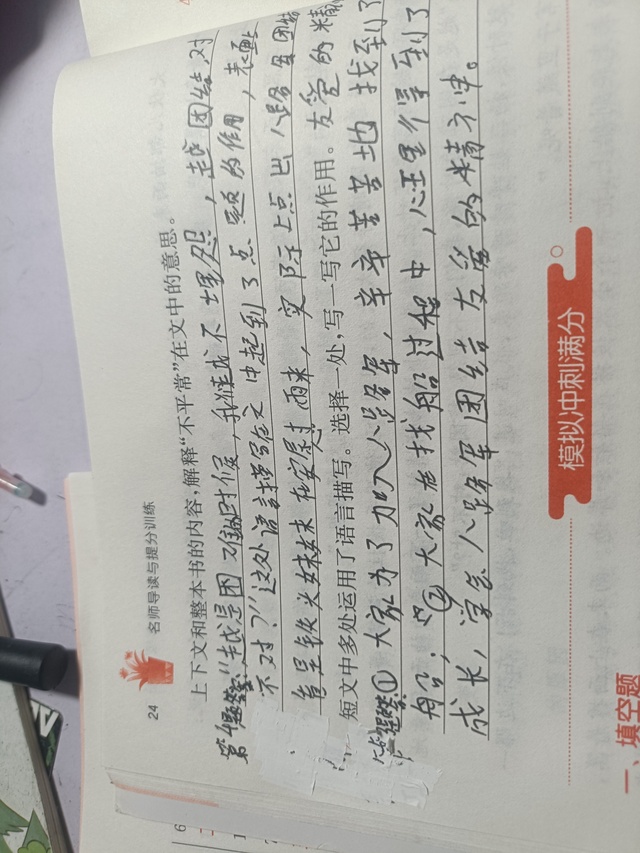 24 名师导读与提分训练
上下文和整本书的内容,解释“不平常”在文中的意思。
第4题答:“越是困难时候,我姓越不埋怨,越团结对
不对?”这处语言描写在文中起到了点题的作用,表面
看是铁火妹妹在安慰雨来,实际上点出八路军团结
短文中多处运用了语言描写。选择一处,写一写它的作用。友爱的精
答①大家为了加入八路军,辛辛苦苦地找到了
船;②大家在找船过程中,心里个得到了
成长,学会八路军团结友爱的精神。
模拟冲刺满分
一、填空题